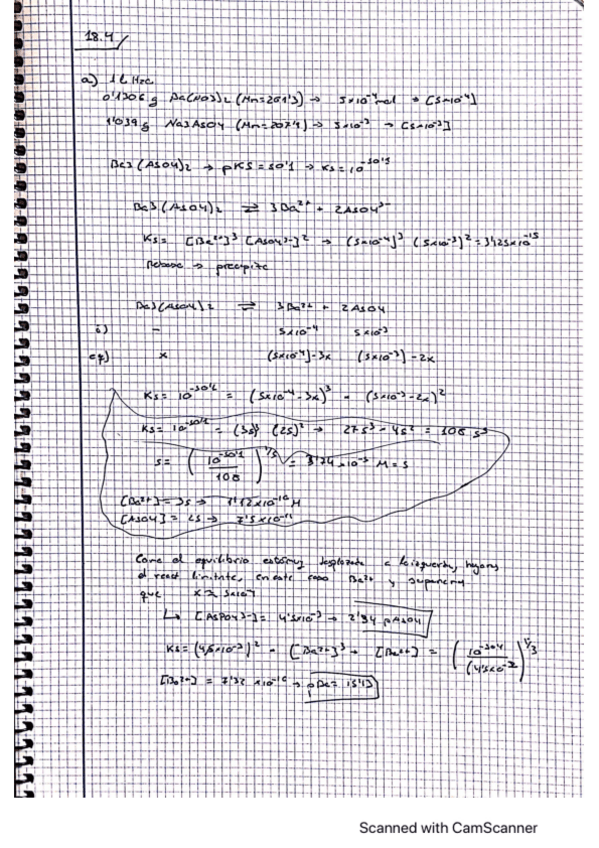 18.4
a) 1 L H2O.
0'1306 g Ba(NO3)2 (Mn=261'3) → 5x10⁻⁴ mol → [5x10⁻⁴]
1'039 g Na3AsO4 (Mn=207'9) → 5x10⁻³ → [5x10⁻³]
Ba3(AsO4)2 → pKs = 50'1 → Ks = 10⁻⁵⁰'¹
Ba3(AsO4)2 ⇄ 3Ba²⁺ + 2AsO4³⁻
Ks = [Ba²⁺]³ [AsO4³⁻]² → (5x10⁻⁴)³ (5x10⁻³)² = 3'125x10⁻¹⁵
Rebasa → precipita
Ba3(AsO4)2 ⇄ 3Ba²⁺ + 2AsO4
i) — 5x10⁻⁴ 5x10⁻³
eq) x (5x10⁻⁴)-3x (5x10⁻³)-2x
Ks = 10⁻⁵⁰'¹ = (5x10⁻⁴-3x)³ · (5x10⁻³-2x)²
Ks = 10⁻⁵⁰'¹ = (3s)³ (2s)² → 27s³ · 4s² = 108 s⁵
s = (10⁻⁵⁰'¹ / 108)^1/5 = M = s
[Ba²⁺] = 3s → 1'12x10⁻¹⁰ M
[AsO4] = 2s → 7'5x10⁻¹¹
Como el equilibrio desplazado a la izquierda,
el react limitante, en este caso Ba²⁺ y
que x
↳ = 4'5x10⁻³ → 2'34 pAsO4
Ks = (4,5x10⁻³)² · [Ba²⁺]³ → [Ba²⁺] =
[Ba²⁺] = 7'32 x10⁻¹⁶ → pBa = 15'13
Scanned with CamScanner